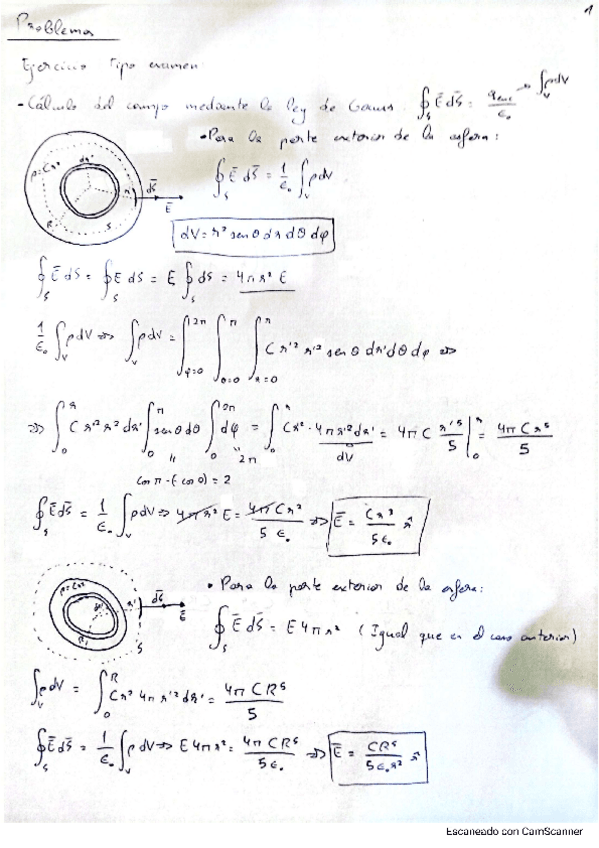 1
Problema
Ejercicio Tipo examen:
- Cálculo del campo mediante la ley de Gauss: ∮_S E̅ dS̅ = q_enc/ε₀ → ∫_V ρdV
• Para la parte exterior de la esfera:
ρ=Cr² dr' r dS̅ E̅ R S
∮_S E̅ dS̅ = 1/ε₀ ∫_V ρdV
dV = r² sen θ dr dθ dφ
∮_S E̅ dS̅ = ∮_S E dS = E ∮_S dS = 4πr² E
1/ε₀ ∫_V ρdV ⇒ ∫_V ρdV = ∫_{φ=0}^{2π} ∫_{θ=0}^{π} ∫_{r=0}^{r} C r'² r'² sen θ dr' dθ dφ ⇒
⇒ ∫_0^r C r'² r'² dr' ∫_0^π sen θ dθ ∫_0^{2π} dφ = ∫_0^r Cr'² · 4πr'² dr' = 4πC r'⁵/5 |_0^r = 4πCr⁵/5
" " 2π dV
cos π - (-cos 0) = 2
∮_S E̅ dS̅ = 1/ε₀ ∫_V ρdV ⇒ 4πr² E = 4πCr³/5ε₀ ⇒ E̅ = Cr³/5ε₀ r̂
• Para la parte exterior de la esfera:
ρ=Cr² dr' R r dS̅ E̅ S
∮_S E̅ dS̅ = E 4πr² (Igual que en el caso anterior)
∫_V ρdV = ∫_0^R Cr'² 4πr'² dr' = 4πCR⁵/5
∮_S E̅ dS̅ = 1/ε₀ ∫_V ρdV ⇒ E 4πr² = 4πCR⁵/5ε₀ ⇒ E̅ = CR⁵/5ε₀r² r̂
Escaneado con CamScanner